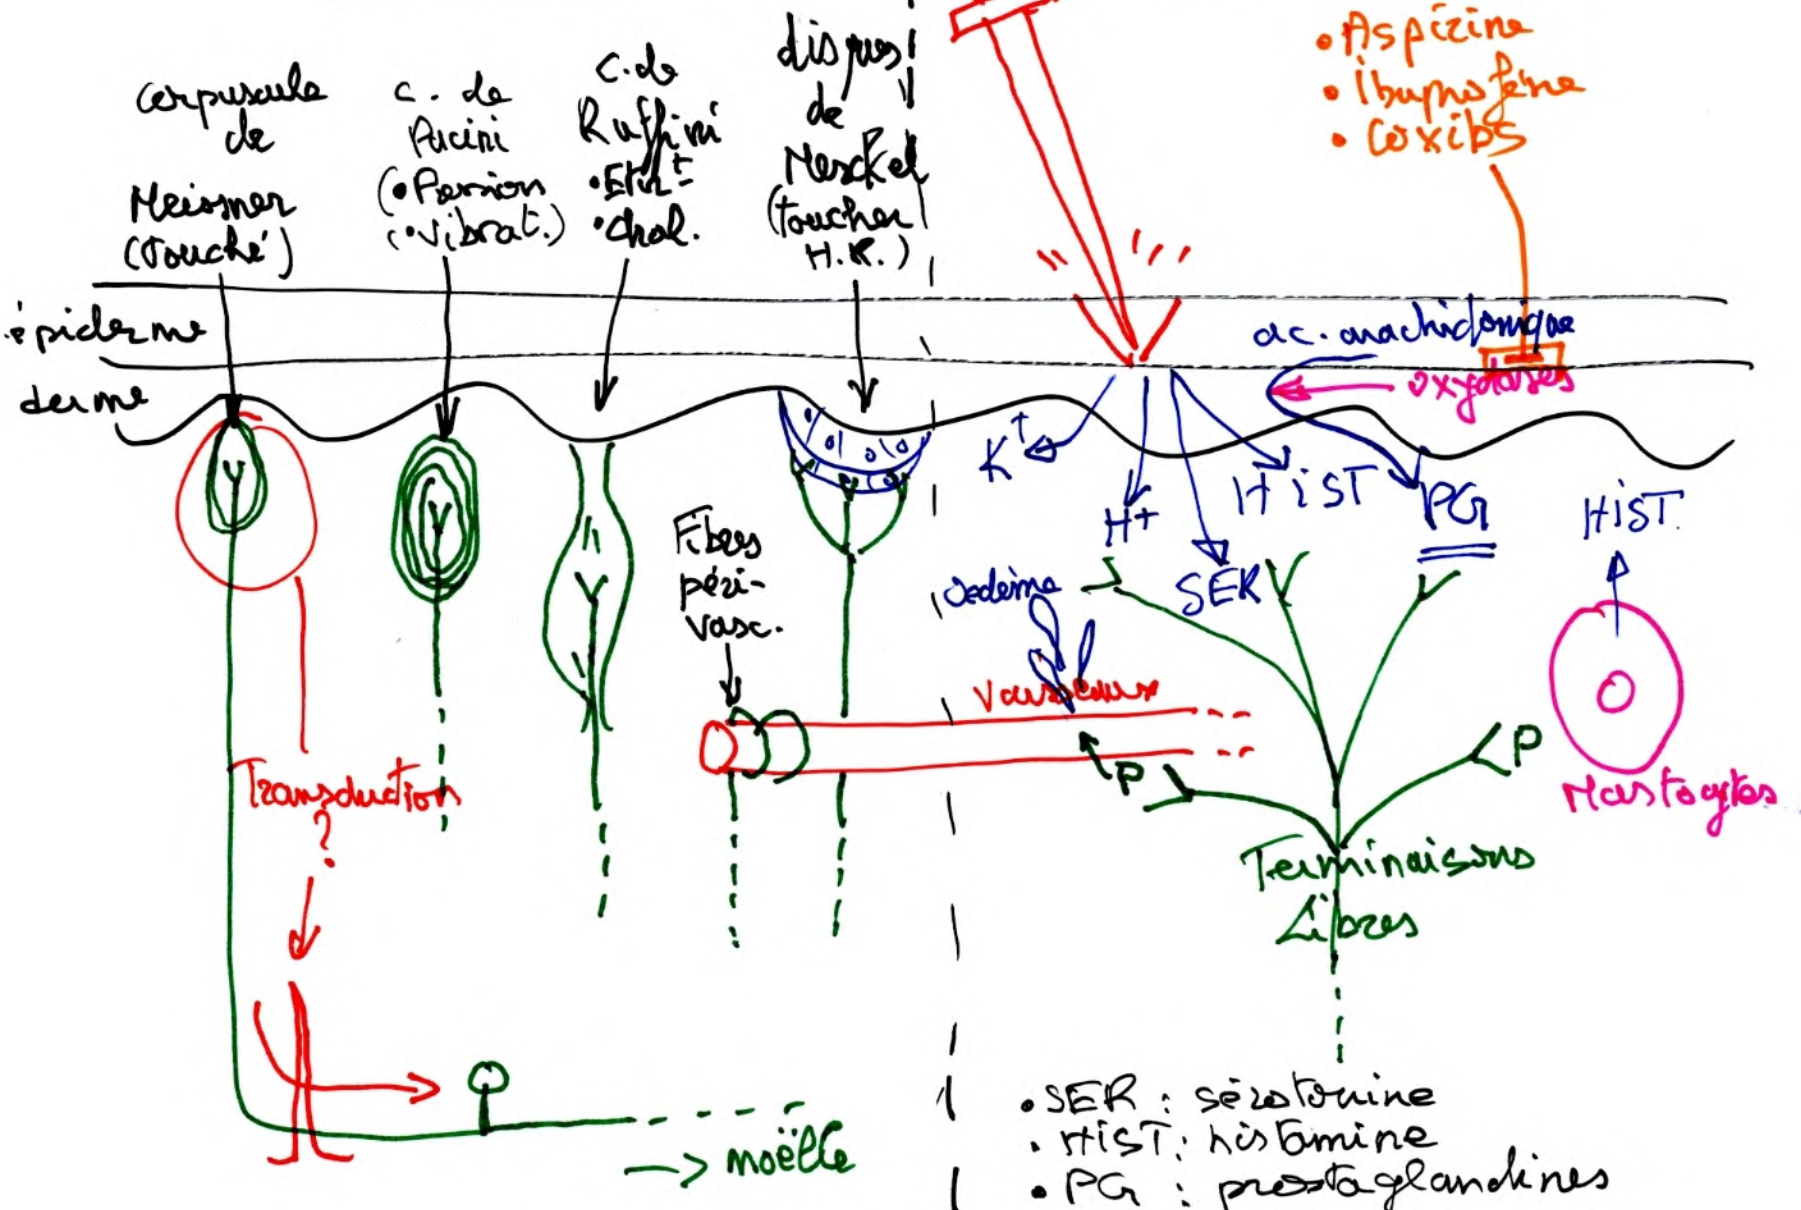 corpuscule
de
Meissner
(touché)
c. de
Pacini
(• Pression
• Vibrat.)
c. de
Ruffini
• Etir^t
• chal.
disques
de
Merckel
(toucher
H.R.)
• Aspirine
• Ibuprofène
• Coxibs
épiderme
derme
ac. arachidonique
oxydases
K+
H+
SER
HiST
PG
HiST.
oedème
Fibres
péri-
vasc.
Vaisseaux
P
P
Mastocytes
Transduction
?
Terminaisons
Libres
→ moëlle
• SER : sérotonine
• HiST : histamine
• PG : prostaglandines